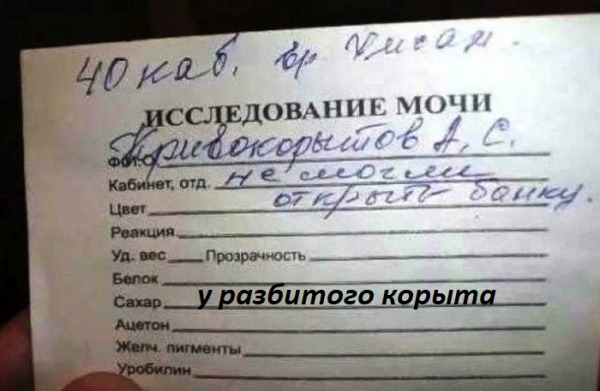 40 каб. вр
ИССЛЕДОВАНИЕ МОЧИ
Ф.И.О. Кривокорытов А. С.
Кабинет, отд. не могли
Цвет открыть банку.
Реакция
Уд. вес Прозрачность
Белок
Сахар у разбитого корыта
Ацетон
Желч. пигменты
Уробилин